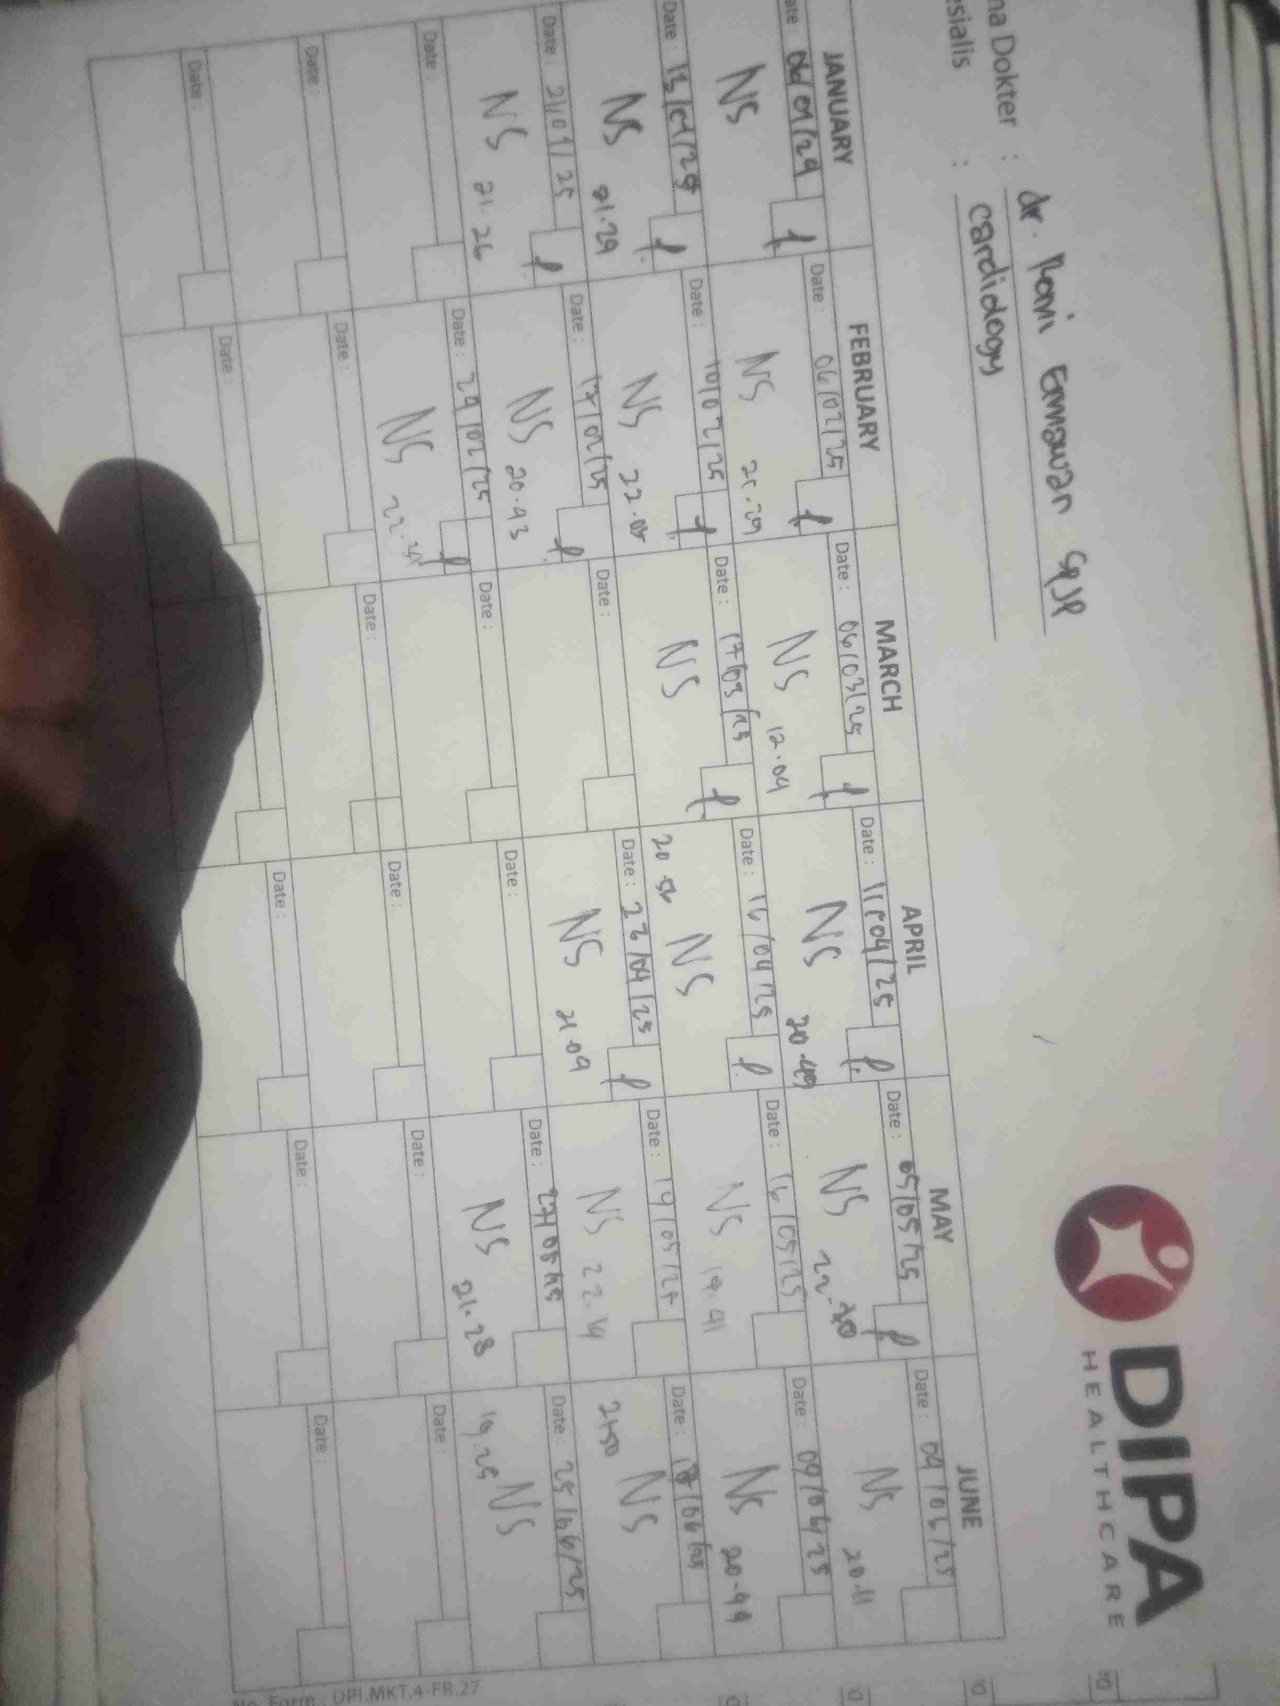 DIPA
HEALTHCARE
na Dokter : dr. Roni Ermawan SpJP
esialis : cardiology
JANUARY FEBRUARY MARCH APRIL MAY JUNE
Date : Date : 06/02/25 Date : 06/03/25 Date : 11/04/25 Date : 05/05/25 Date : 04/06/25
NS NS 21.29 NS 12.09 NS 20.49 NS 22. NS 20.11
Date : 13/01/25 Date : 10/02/25 Date : 17/03/25 Date : 16/04/25 Date : 16/05/25 Date : 09/06/25
NS 21.29 NS 22.05 NS 20.56 NS NS 19.41 NS 20.49
Date : 21/01/25 Date : 17/02/25 Date : Date : 22/04/25 Date : 19/05/25 Date :
NS 21.26 NS 20.43 NS 21.09 NS 22.14 2150 NS
Date : Date : 24/02/25 Date : Date : Date : 27/05/25 Date : 25/06/25
NS NS 21.28 19.25 NS
Date : Date : Date : Date : Date : Date :
Date : Date : Date : Date : Date :
No. Form : DPI.MKT.4-FR.27